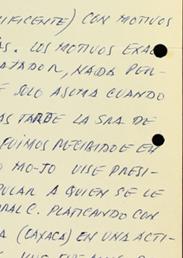 IFICENTE) CON MOTIVOS
AS. LOS MOTIVOS EXAC
AZADOR, NADA PER-
E SOLO ASUMA CUANDO
AS TARDE LA SRA DE
FUIMOS RECIBIDOS EN
O MO-JO VISE PRESI-
PULAR A QUIEN SE LE
RAL C. PLATICANDO CON
A (OAXACA) EN UNA ACTI-